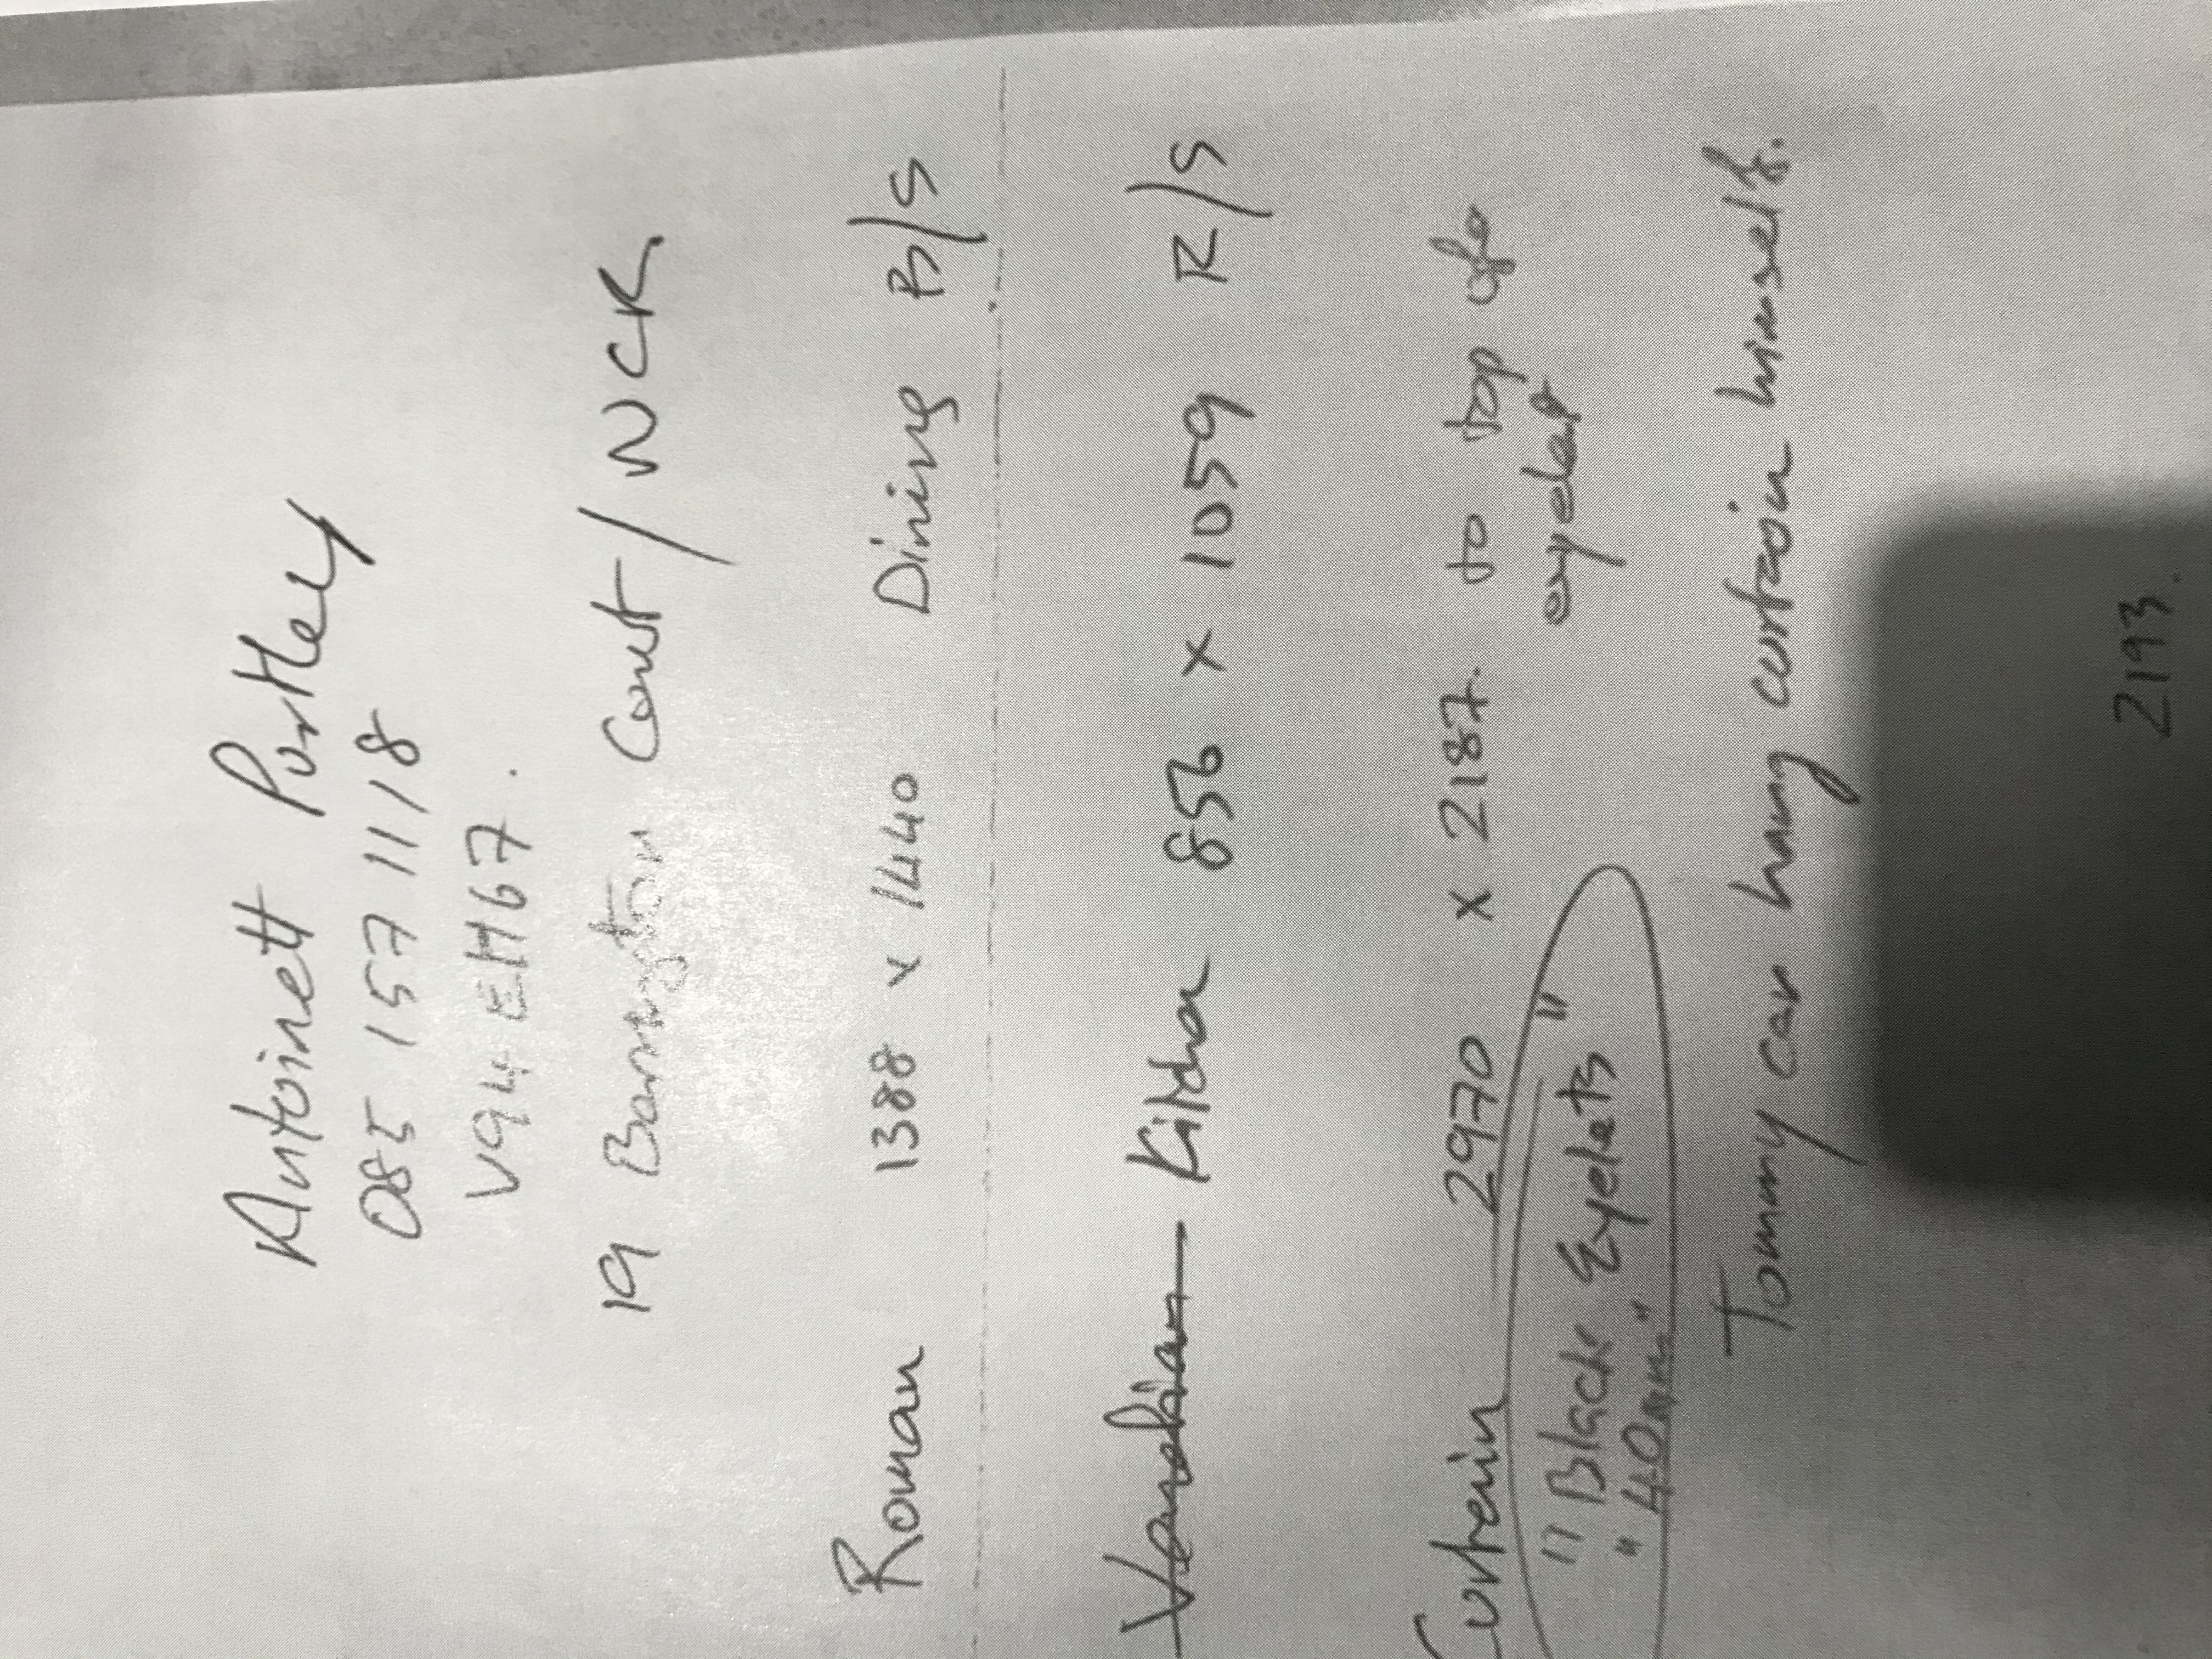 Antoinett Purtley
085 157 11 18
V94 EH67.
19 Barrington Court / NCR
Roman 1388 x 1440 Dining R/S
Venetian Kitchen 856 x 1059 R/S
Curtain 2970 x 2187. to top of
eyelet
" Black Eyelets "
" 40mm "
Tommy can hang curtain himself.
2193.